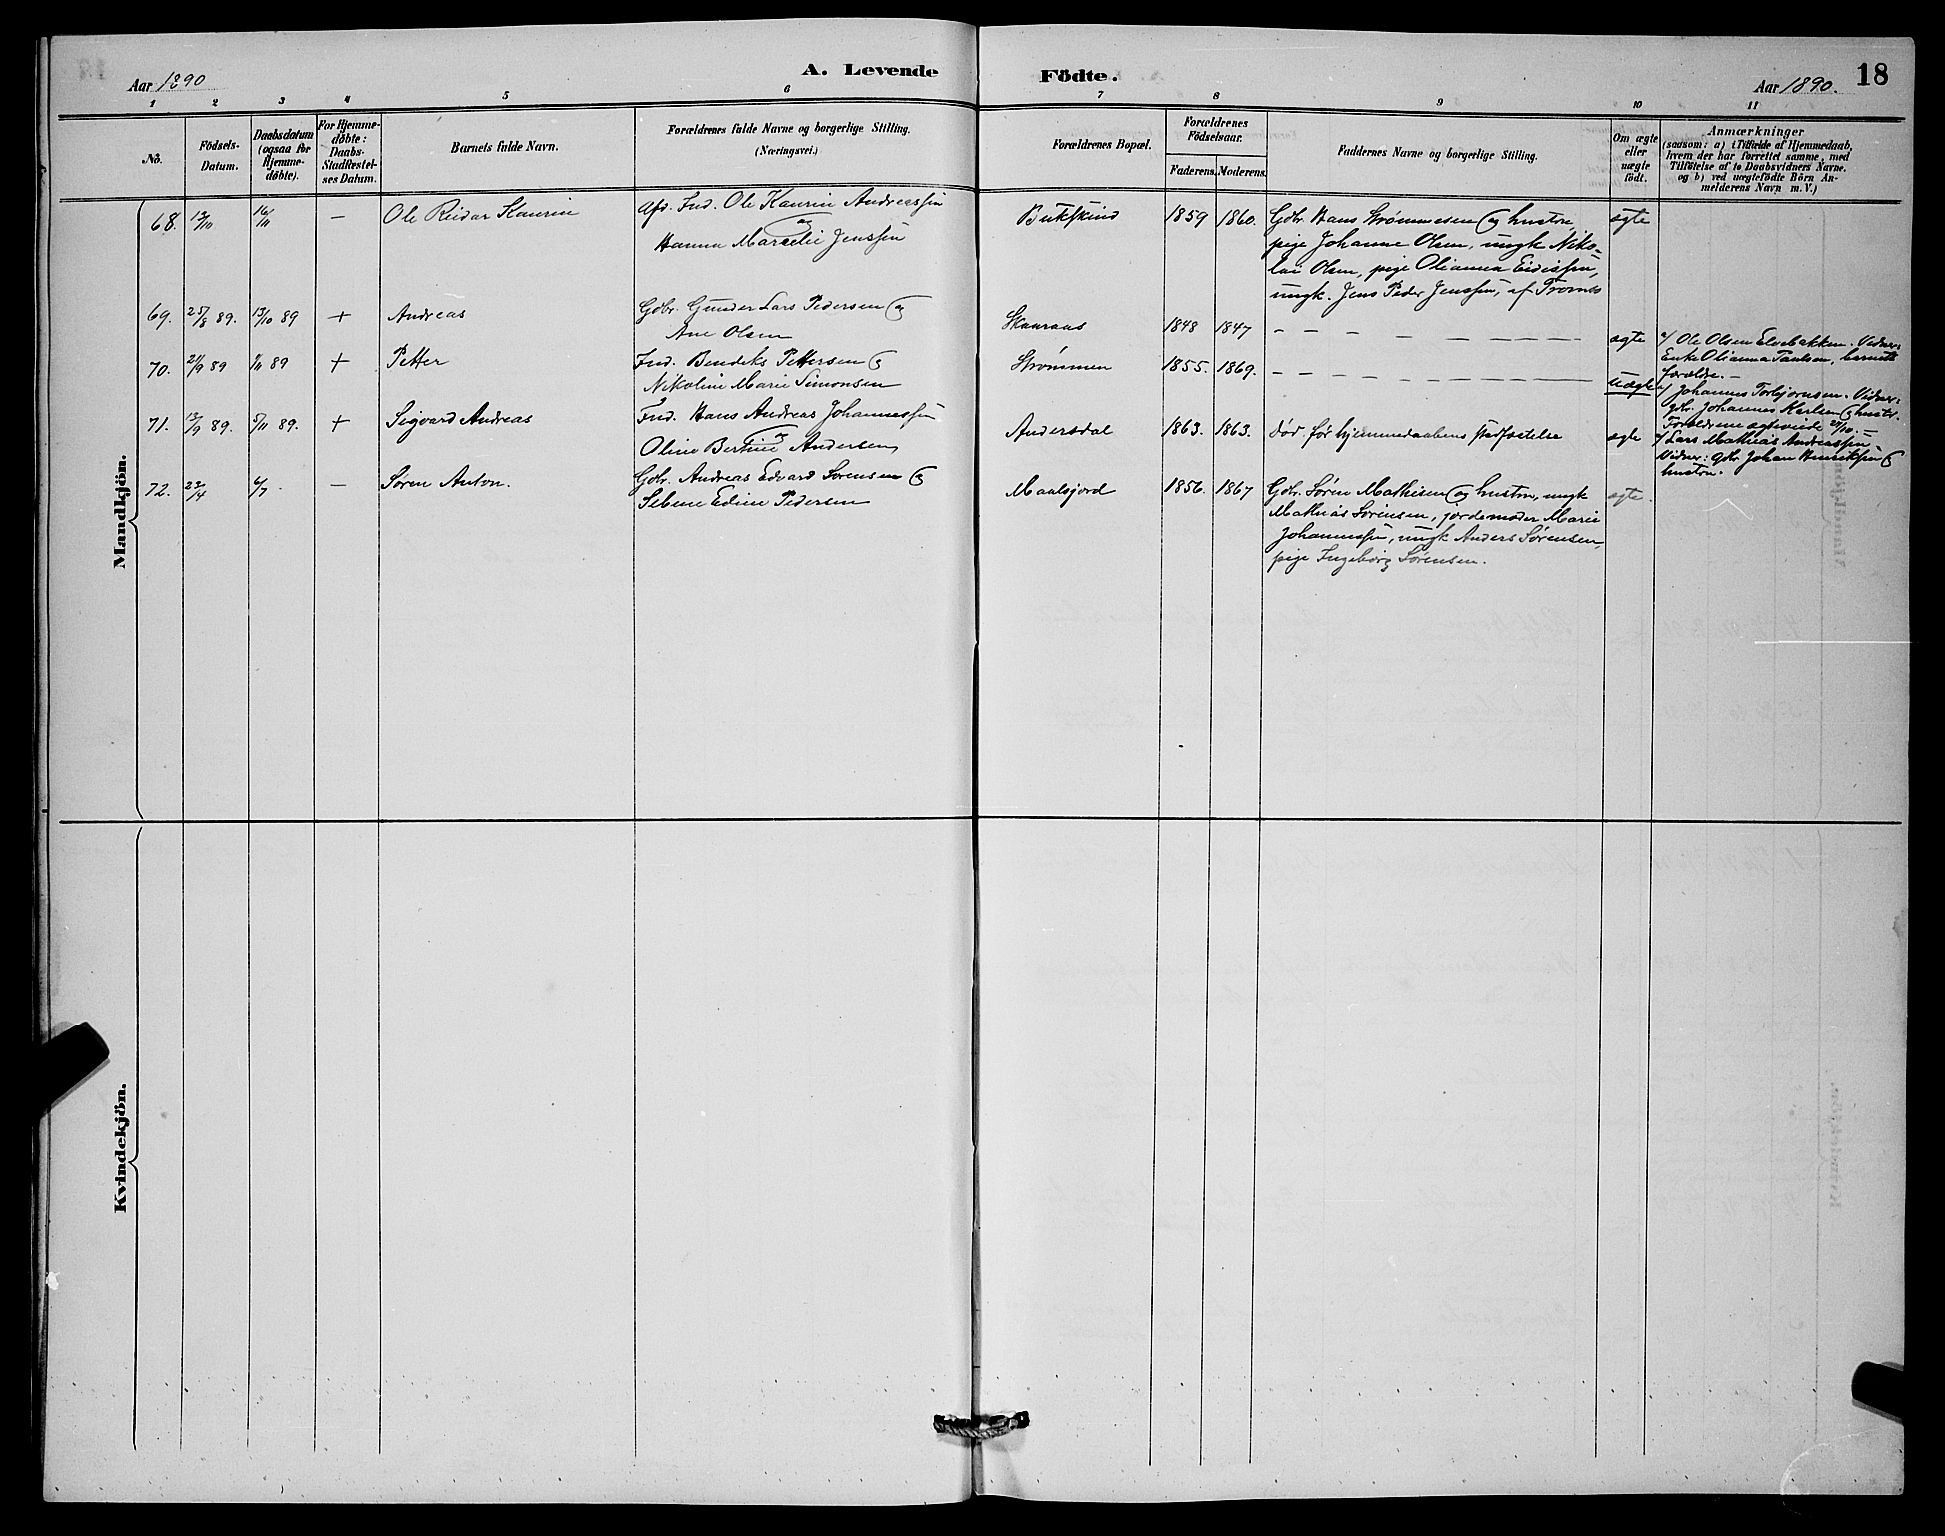 Aar 1890
A. Levende
Födte.
Aar 1890.
18
1 2 3 4 5 6 7 8 9 10 11
Nö.
Födsels-
Datum.
Daabsdatum
(ogsaa for
Hjemme-
döbte).
For Hjemme-
döbte:
Daabs-
Stadfæstel-
ses Datum.
Barnets fulde Navn.
Forældrenes fulde Navne og borgerlige Stilling.
(Næringsvei.)
Forældrenes Bopæl.
Forældrenes
Födselsaar.
Faderens. Moderens.
Faddernes Navne og borgerlige Stilling.
Om ægte
eller
uægte
födt.
Anmærkninger
(saasom: a) i Tilfælde af Hjemmedaab,
hvem der har forrettet samme, med
Tilföielse af to Daabsvidners Navne.
og b) ved uægtefödte Börn An-
melderens Navn m. V.)
Mandkjön.
68. 13/10 16/11 — Ole Reidar Kaurin
Afd. Ind. Ole Kaurin Andreassen
og
Hanna Marcelie Jenssen
Bukskind 1859 1860.
Gdbr. Hans Strømmesen og hustru,
pige Johanne Olsen, ungk Niko-
lai Olsen, pige Olianna Eidissen,
ungk. Jens Peder Jenssen, af Tromsø
ægte
69. 25/8 89. 13/10 89 + Andreas
Gdbr. Gunder Lars Pedersen og
Ane Olsen
1848 1847 — — — — — — —
ægte
a/ Ole Olsen Elvebakken. Vidner:
Enke Olianna Paulsen, barnets
forældre. —
70. 21/9 89 1/11 89 + Petter
Ind. Bendiks Pettersen og
Nikoline Marie Simonsen
Strømmen 1855. 1869. — — — — — — —
Uægte
a/ Johannes Torbjørnsen. Vidner:
gdbr. Johannes Karlsen og hustr.
Forældrene ægteviede 20/10. —
71. 13/9 89. 5/11 89. + Sigvard Andreas
Ind. Hans Andreas Johannessen
og
Oline Bertine Andersen
Andersdal 1863. 1863. Død før hjemmedaabens stadfæstelse
ægte
a/ Lars Mathias Andreassen
Vidner: gdbr Johan Henriksen og
hustru.
72. 22/4 6/7 — Søren Anton.
Gdbr. Andreas Edvard Sørensen og
Sebine Edine Pedersen
Maalsjord 1856. 1867
Gdbr. Søren Mathisen og hustru, ungk
Mathias Sørensen, jordemoder Marie
Johannessen, ungk Anders Sørensen,
pige Ingeborg Sørensen.
ægte.
Kvindekjön.